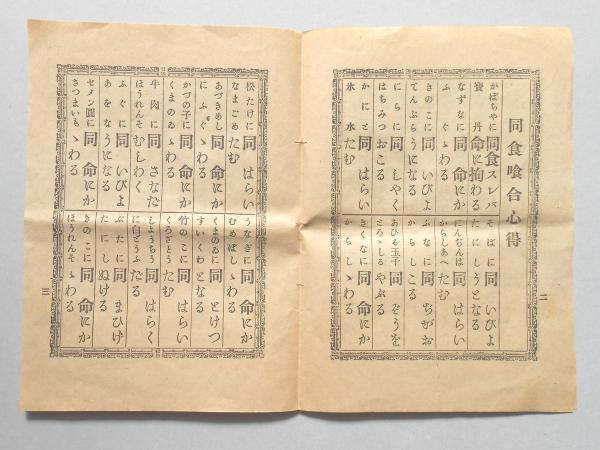 同食喰合心得
かぼちやに同食スレバ
寶丹命に拘わる
そばに同いびよ
たにしうとなる
なずなに同命にか
ふぐゝわる
にんぢんば同はらい
からしあへたむ
きのこに同いびよ
てんぷらうになる
ふなに同ぢがお
からしこる
にらに同しやく
はちみつおこる
あひる玉子同ぞうを
とろゝしるやぶる
かにと同はらい
氷水たむ
きくなに同命にか
からしゝわる
二
松たけに同はらい
なまごめたむ
うなぎに同命にか
むめぼしゝわる
あづきめし同命にか
にふぐゝわる
くまのゐに同とけつ
すいくわとなる
かづの子に同命にか
くまのゐゝわる
竹のこに同はらい
くろざとうたむ
牛肉に同さなだ
ほうれんそむしわく
しようちう同はらく
に白どうふだる
ふぐに同いびよ
あをなうになる
ぶたに同まひげ
たにしぬける
セメン圓に同命にか
さつまいもゝわる
きのこに同命にか
ほうれんそゝわる
三